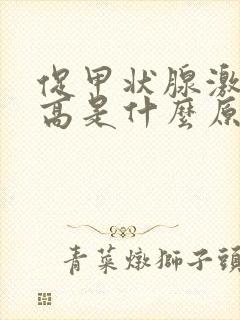 促甲状腺激
高是什麼原
青菜燉獅子頭